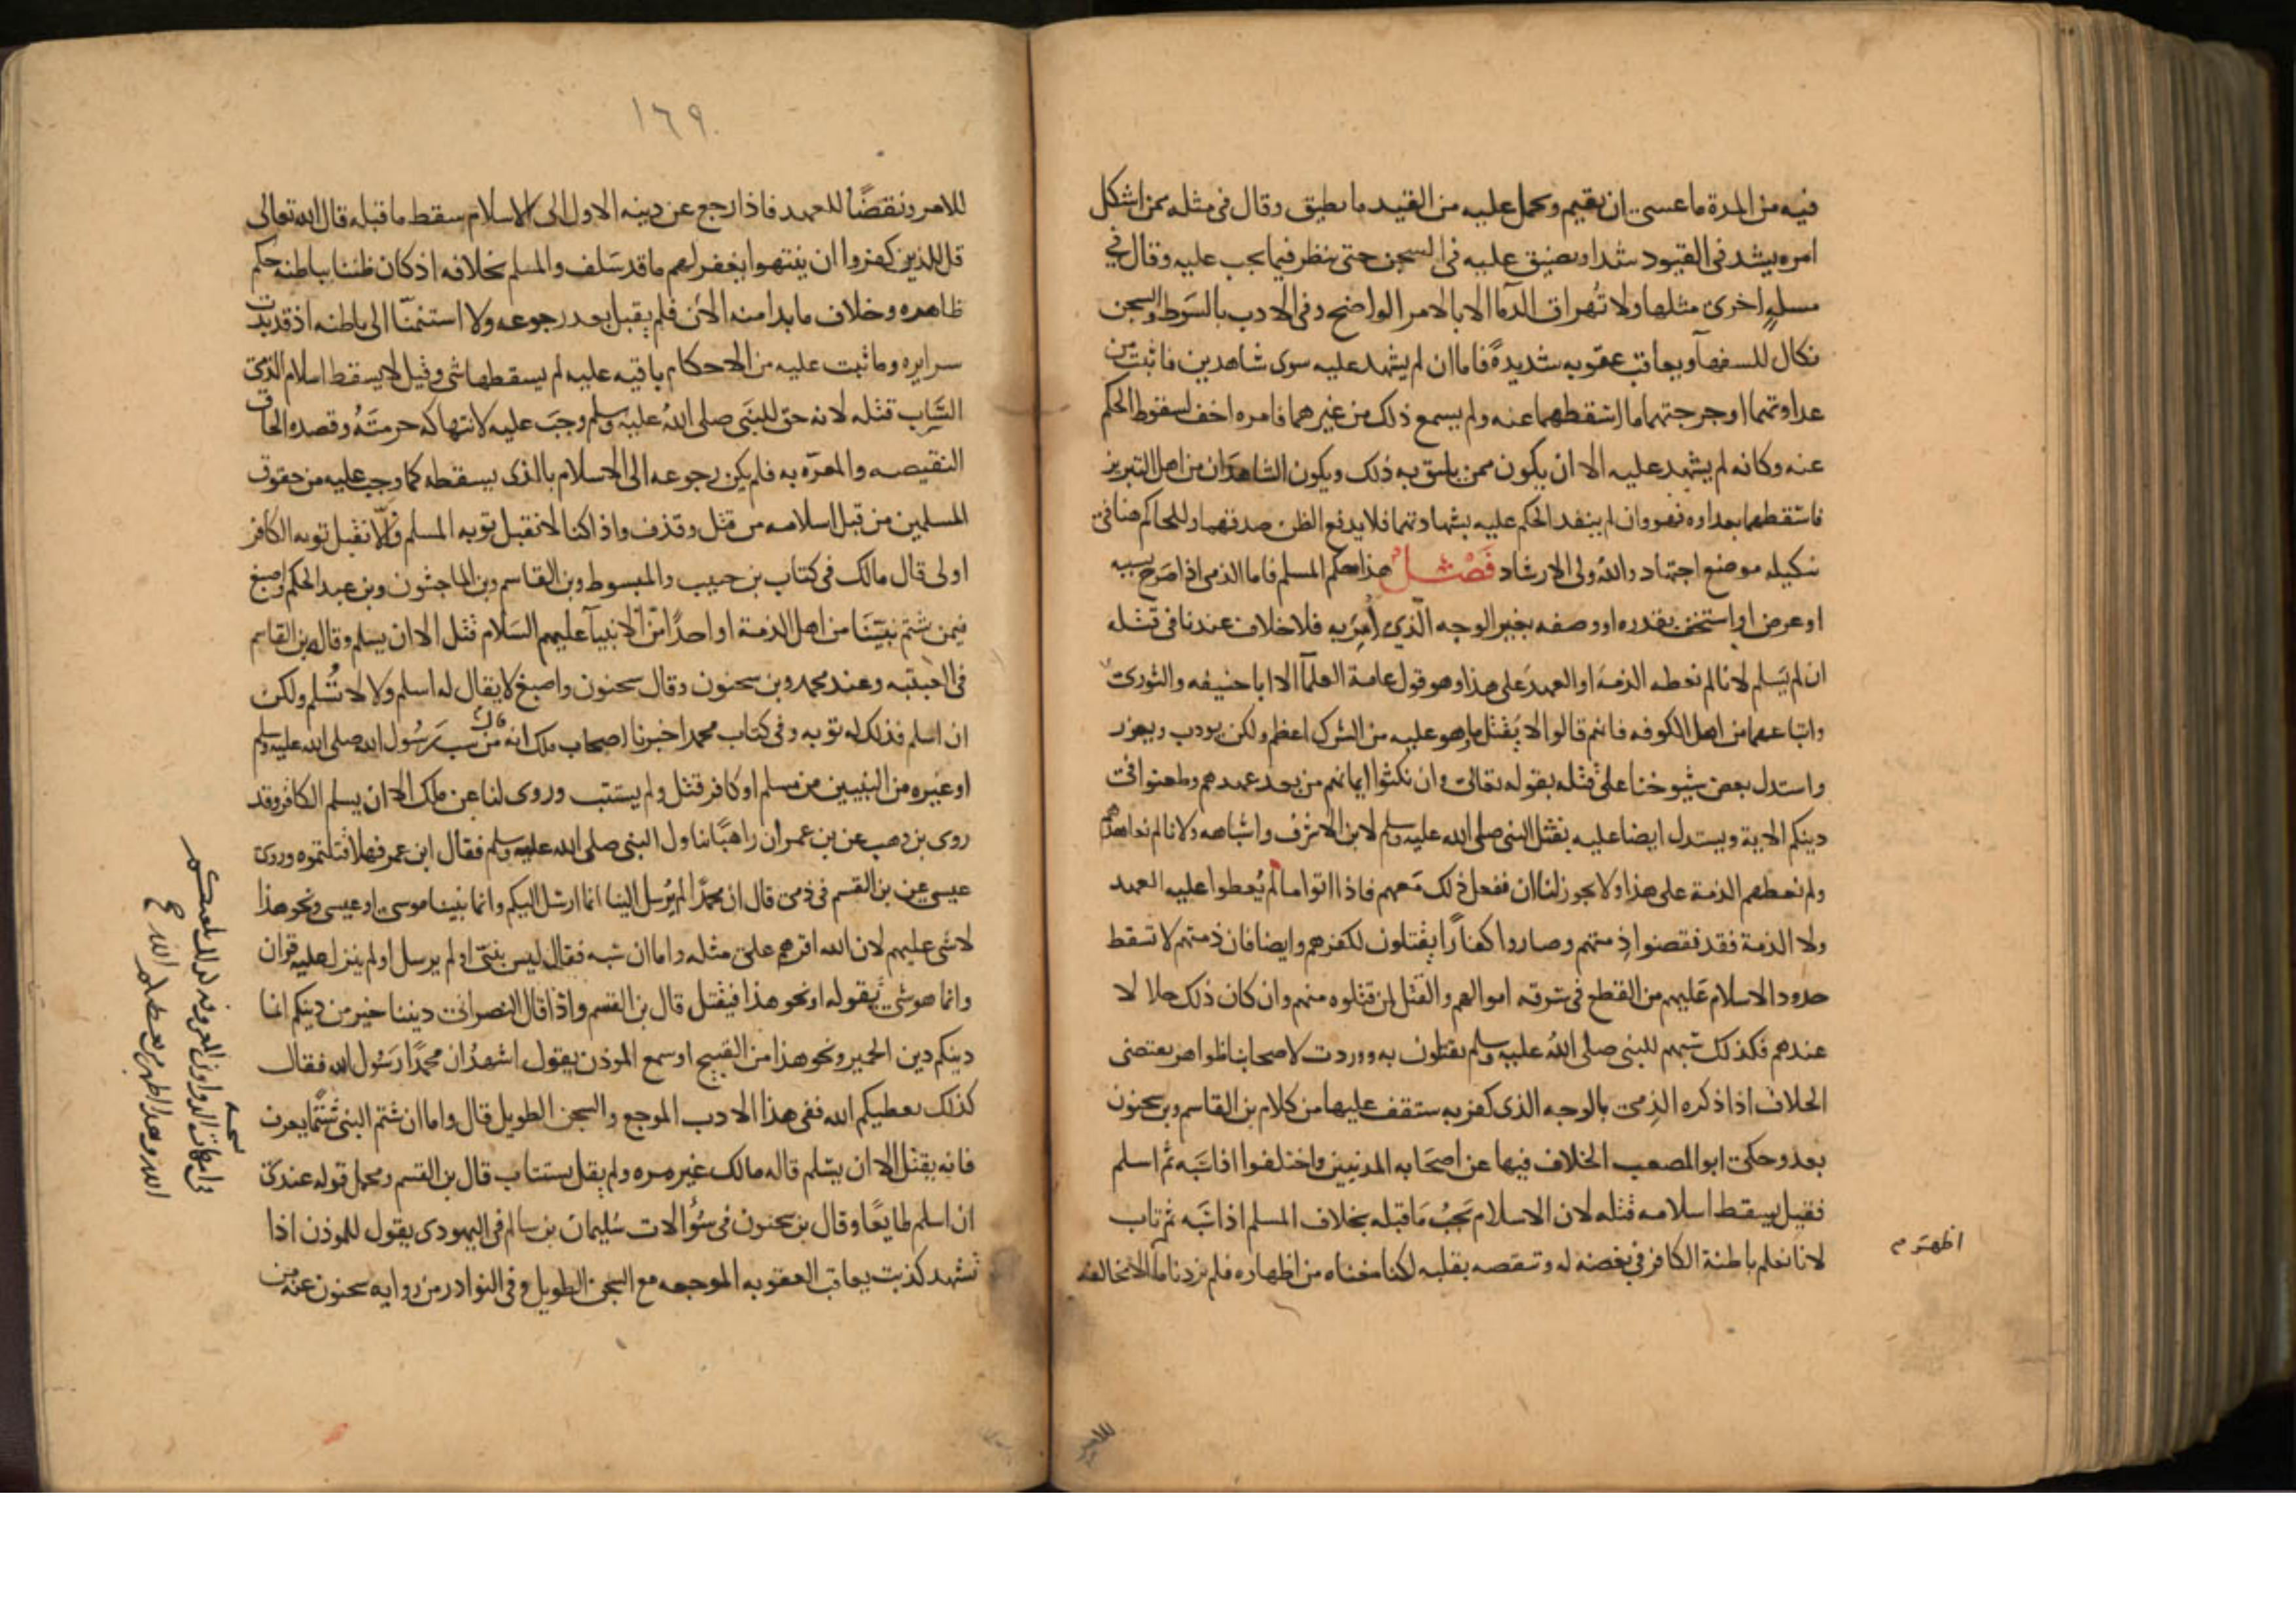 فيه من المدة ما عسى ان يقيم ويحمل عليه من القيد ما يطيق وقال فى مثله ممن اشكل
امره يشد فى القيود شدا ويضيق عليه فى السجن حتى ينظر فيما يجب عليه وقال فى
مسلةٍ اخرى مثلها ولا تُهراق الدمآ الا بالامر الواضح وفى الادب بالسَوط والسجن
نكال للسفهآ ويعاقب عقوبه شديدةً فاما ان لم يشهد عليه سوى شاهدين فاثبت من
عداوتهما او جرحتهما ما اسْقطهما عنه ولم يسمع ذلك من غيرهما فامره اخف لسقوط الحكم
عنه وكانه لم يشهد عليه الا ان يكون ممن يليق به ذلك ويكون الشاهدَان من اهل التبريز
فاسْقطهما بعداوه فهو وان لم ينفد الحكم عليه بشهادتهما فلا يدفع الظن صدقهما وللحاكم هنا فى
تنكيله موضع اجتهاد واللهُ ولى الارشاد فَصْـــل هذا حكم المسلم فاما الذمى اذا صَرح بسبه
او عرض او استخف بقدره او وصفه بغير الوجه الّذي كفر به فلا خلاف عندنا فى قتله
ان لم يَسلم لانا لم نعطه الذمة او العهدَ على هذا وهو قول عامة العلمآ الا ابا حنيفه والثورى
واتباعهما من اهل الكوفه فانهم قالوا لا يُقتل ما هو عليه من الشرك اعظم ولكن يودب ويعزر
واستدل بعض شيوخنا على قتله بقوله تعالى وان نكثوا ايمانهم من بعد عهدهم وطعنوا فى
دينكم الاية ويستدل ايضا عليه بقتل النبى صلى الله عليه وسلم لابن الاشرف واشباهه ولانا لم نعاهدهم
ولم نعطهم الذمة على هذا ولا يجوز لنا ان نفعل ذلك مَعهم فاذا اتوا ما لم يُعطوا عليه العهد
ولا الذمة فقد نقضوا ذِمتهم وصاروا كفارًا يقتلون لكفرهم وايضا فان ذمتهم لا تسقط
حدود الاسلام عَليهم من القطع فى سَرقه اموالهم والقتل لمن قتلوه منهم وان كان ذلك حلالا
عندهم فكذلك سَبهم للنبى صلى اللهُ عليه وسلم يقتلون به ووردت لاصحابنا ظواهر يقتضى
الخلاف اذا ذكره الذِمى بالوجه الذى كفر به ستقف عليها من كلام بن القاسم وبن سحنون
بعد وحكى ابو المصعب الخلاف فيها عن اصحَابه المدنيين واختلفوا اذا سَبّه ثم اسلم
فقيل يسقط اسلامه قتله لان الاسلام يَجبُ مَا قبله بخلاف المسلم اذا سَبّه ثم تاب
لانا نعلم باطنة الكافر فى بغضه له وتنقصه بقلبه لكنا منعناه من اظهاره فلم يزدنا ما الا مخالفه
اظهره م
للامر
١٦٩
للامر ونقضًا للعهد فاذا رجع عن دينه الاول الى الاسلام سقط ما قبله قال الله تعالى
قل للذين كفروا ان ينتهوا يغفر لهم ما قد سَلف والمسلم بخلافه اذ كان ظننا بباطنه حكم
ظاهره وخلاف ما بدا منه الآن فلم يقبل بعد رجوعه ولا استنمنا الى باطنه اذ قد بدت
سرايره وما ثبت عليه من الاحكام باقيه عليه لم يسقطها شى وقيل لا يسقط اسلام الذمى
السَّاب قتله لانه حق للنبَى صلى اللهُ عليْه وسلم وجبَ عليه لانتهاكه حرمتَهُ وقصده الحاق
النقيصه والمعرّه به فلم يكن رجوعه الى الاسلام بالذى يسقطه كما وجب عليه من حقوق
المسلمين من قبل اسلامه من قتل وقذف واذا كنا لا نقبل توبه المسلم فالّا نقبل توبه الكافر
اولى قال مالك فى كتاب بن حبيب والمبسوط وبن القاسم وبن الماجشون وبن عبد الحكم واصبغ
فيمن شتم نبيّنَا من اهل الذمة او احدًا من الانبيآ عليهم السَلام قُتل الا ان يسلم وقاله بن القاسم
فى العتبيه وعند محمد وبن سحنون وقال سحنون واصبغ لا يقال له اسلم ولا لا تُسْلم ولكن
ان اسلم فذلك له توبه وفى كتاب محمد اخبرنا اصحاب ملك انه قال من سب رَسُول الله صلى الله عليه وسلم
او غيره من النبيين من مسلم او كافر قتل ولم يستتب وروى لنا عن ملك الا ان يسلم الكافر وقد
روى بن وهب عن بن عمر ان راهبًا تناول النبى صلى الله عليه وسلم فقال ابن عمر فهلا قتلتموه وروى
عيسى عن بن القسم فى ذمى قال ان محمدًا لم يُرسل الينا انما ارسل اليكم وانما نبينا موسى او عيسى ونحو هذا
لا شى عليهم لان الله اقرهم على مثله واما ان سَبه فقال ليس بنبّى او لم يرسل او لم ينزل عليه قران
وانما هو شى يقوله او نحو هذا فيقتل قال بن القسم واذا قال النصرانى ديننا خير من دينكم انما
دينكم دين الحمير ونحو هذا من القبيح او سمع الموذن يقول اشهدُ ان محمدًا رَسُول الله فقال
كذلك يعطيكم الله ففى هذا الادب الموجع والسجن الطويل قال واما ان شتم النبى شَتْمًا يعرف
فانه يقتل الا ان يسْلم قاله مالك غير مره ولم يقل يستتاب قال بن القسم ومحمل قوله عندى
ان اسلم طايعًا وقال بن سحنون فى سُؤالات سُليمان بن سالم فى اليهودى يقول للموذن اذا
تشهد كذبت يعاقب العقوبه الموجعه مع السجن الطويل وفى النوادر من روايه سحنون عنه من